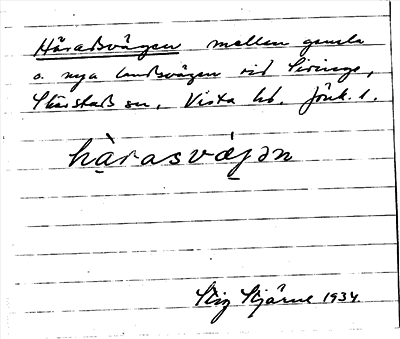 Häradsvägen mellan gamla
o. nya landsvägen vid Siringe,
Skärstads sn, Vista hd. Jönk. l.
hàrasvǽgən
Stig Stjärne 1934